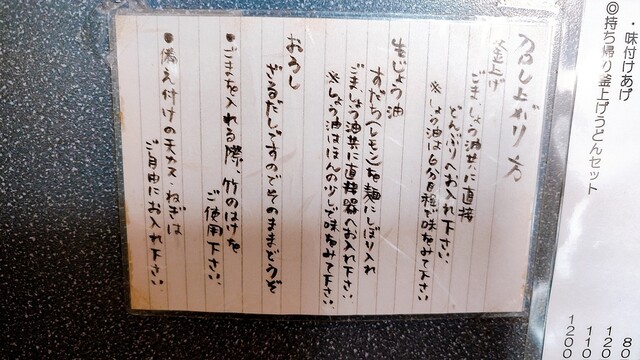 ・味付けあげ
80
◎持ち帰り釜上げうどんセット
120
110
1200
召し上がり方
釜上げ
ごま、しょう油共に直接
どんぶりへお入れ下さい。
※しょう油は6分目程で味をみて下さい
生じょう油
すだち(レモン)を麺にしぼり入れ
ごましょう油共に直接器へお入れ下さい
※しょう油はほんの少しで味をみて下さい。
おろし
ざるだしですのでそのままどうぞ
●ごまを入れる際、竹のはけを
ご使用下さい。
●備え付けの天カス・ねぎは
ご自由にお入れ下さい